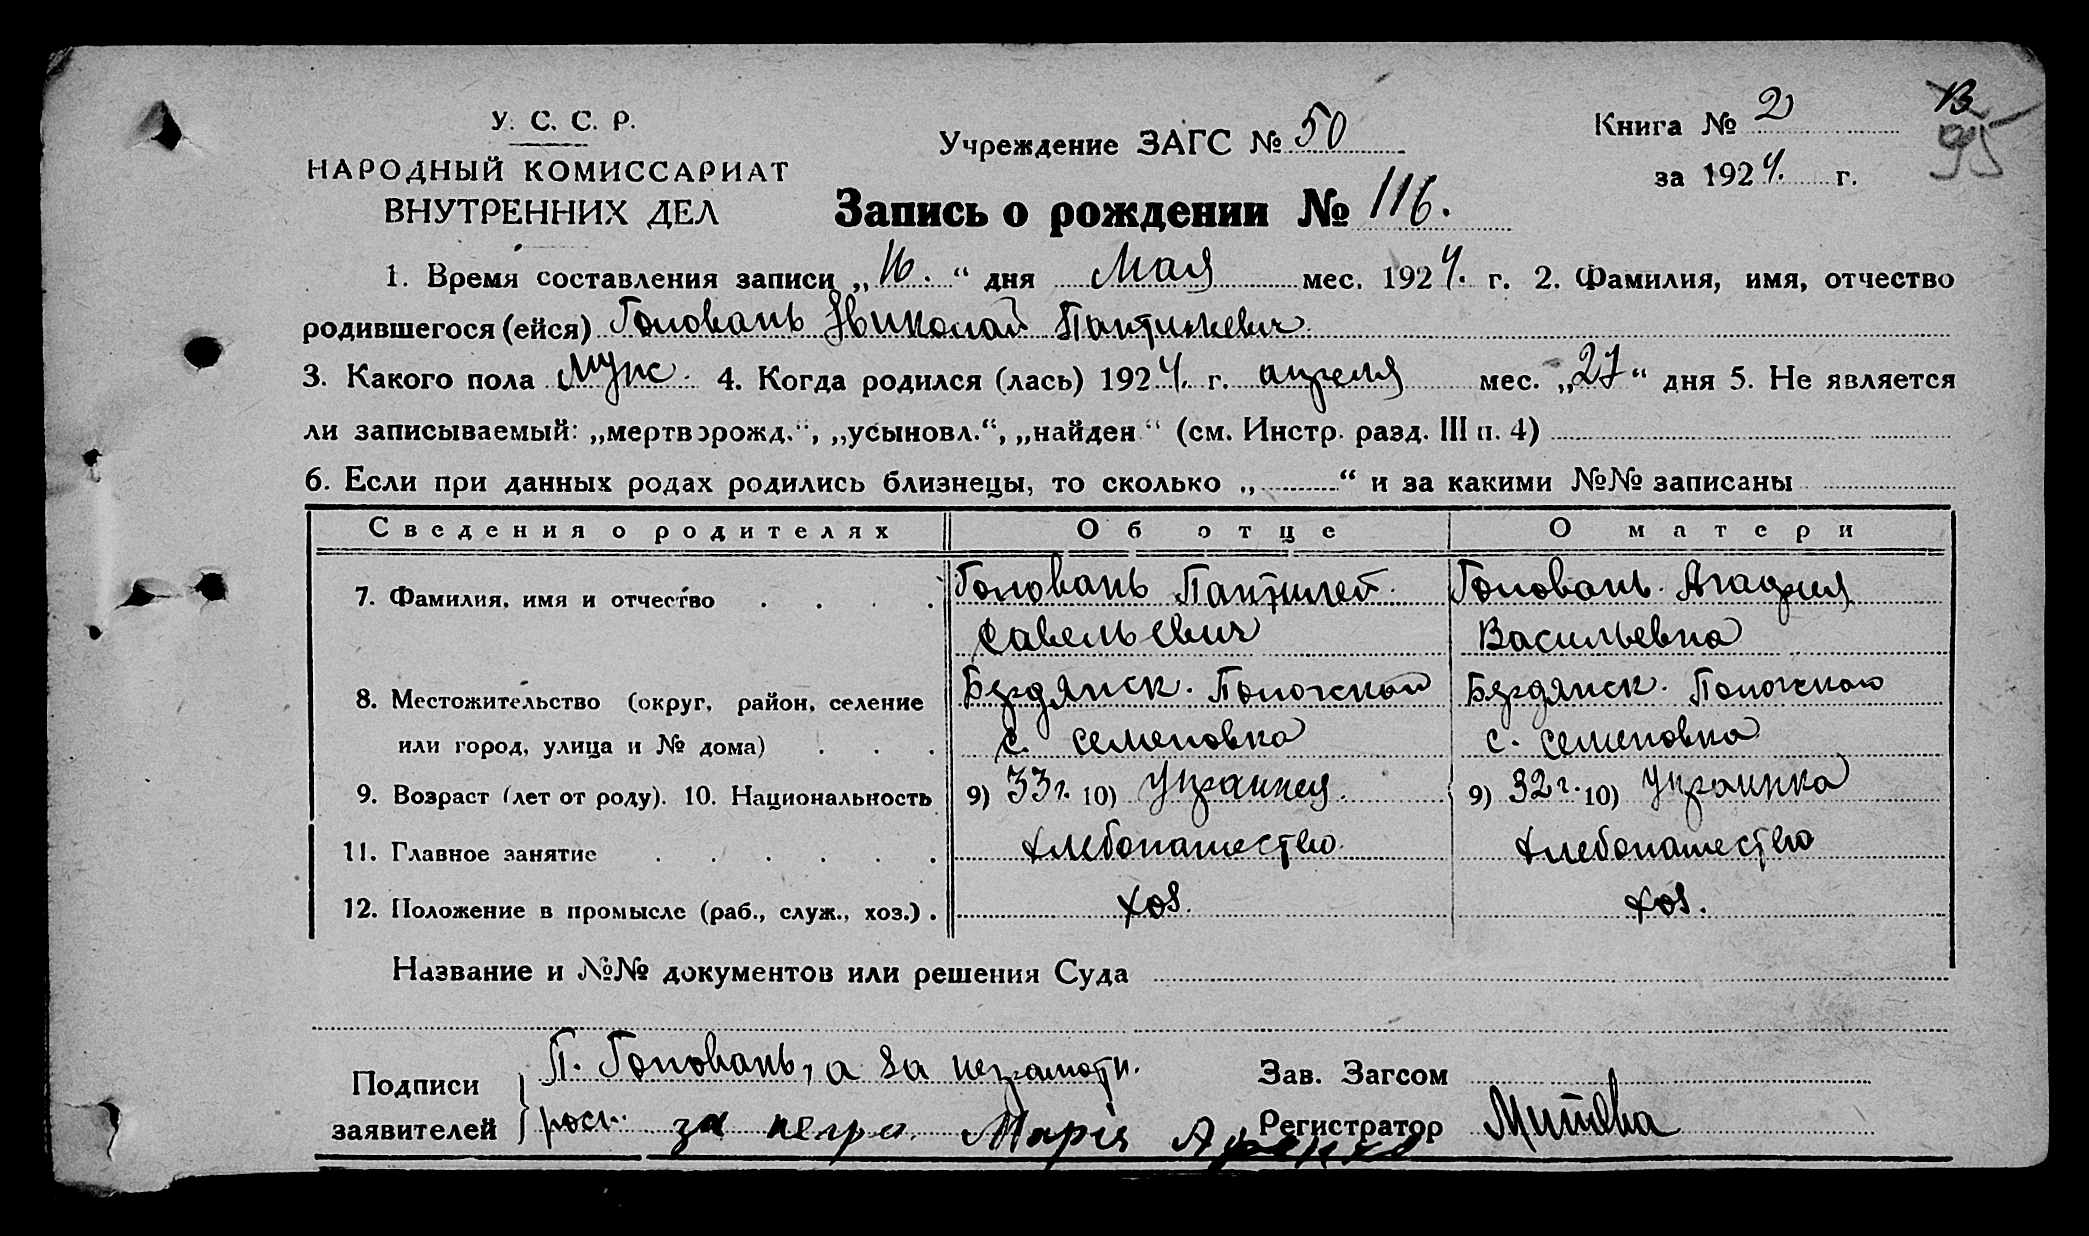 У. С. С. Р.
НАРОДНЫЙ КОМИССАРИАТ
ВНУТРЕННИХ ДЕЛ
Учреждение ЗАГС № 50
Книга № 2
за 1924. г.
95
Запись о рождении № 116.
1. Время составления записи „16.“ дня Мая мес. 1924. г. 2. Фамилия, имя, отчество
родившегося (ейся) Головань Николай
3. Какого пола муж. 4. Когда родился (лась) 1924. г. апреля мес. „27“ дня 5. Не является
ли записываемый: „мертворожд.“, „усыновл.“, „найден“ (см. Инстр. разд. III п. 4)
6. Если при данных родах родились близнецы, то сколько „ “ и за какими №№ записаны
Сведения о родителях Об отце О матери
7. Фамилия, имя и отчество Головань Пантилей Головань Агафия
Савельевич Васильевна
8. Местожительство (округ, район, селение Бердянск. Пологский Бердянск. Пологского
или город, улица и № дома) с. Семеновка с. Семеновка
9. Возраст (лет от роду). 10. Национальность 9) 33 г. 10) Украинец 9) 32 г. 10) Украинка
11. Главное занятие хлебопашество хлебопашество
12. Положение в промысле (раб., служ., хоз.) хоз. хоз.
Название и №№ документов или решения Суда
Подписи П. Головань, а за неграмотн. Зав. Загсом
заявителей росп. за негра. Марія Регистратор